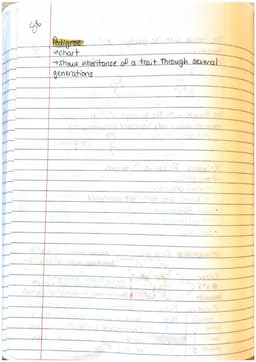 Pedigree
→chart
→shows inheritance of a trait Through several
generations